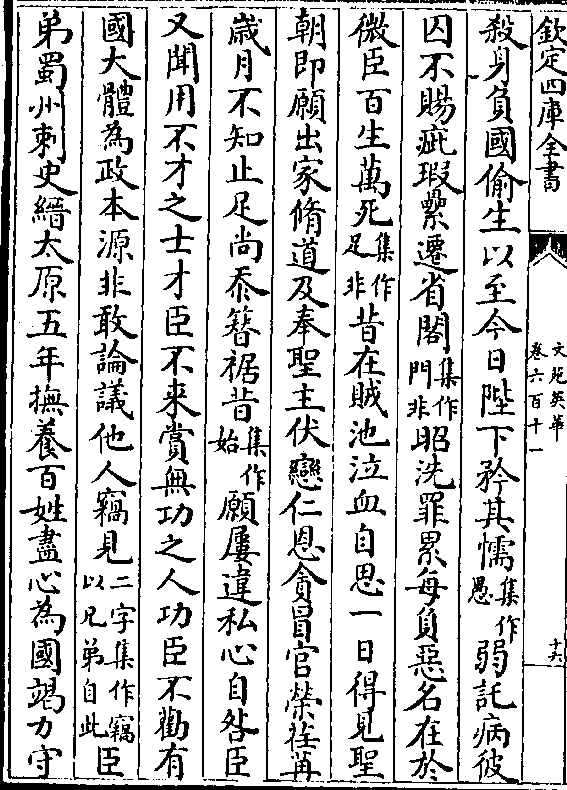 欽定四庫全書
文苑英華
卷六百十一
十六
殺身負國偷生以至今日陛下矜其懦集作愚弱託病彼
囚不賜疵瑕纍遷省閣集作門非昭洗罪累每負惡名在於
微臣百生萬死集作足非昔在賊池泣血自思一日得見聖
朝即願出家脩道及奉聖主伏戀仁恩貪冒官榮荏苒
歲月不知止足尚忝簪裾昔集作始願屢違私心自咎臣
又聞用不才之士才臣不來賞無功之人功臣不勸有
國大體為政本源非敢論議他人竊見二字集作竊以兄弟自此臣
弟蜀州刺史縉太原五年撫養百姓盡心為國竭力守